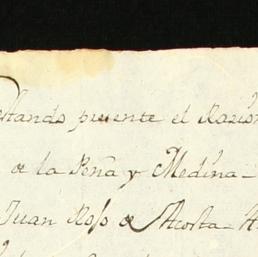 estando presente el Razión
o de la Peña y Medina-
Juan Roso de Acosta